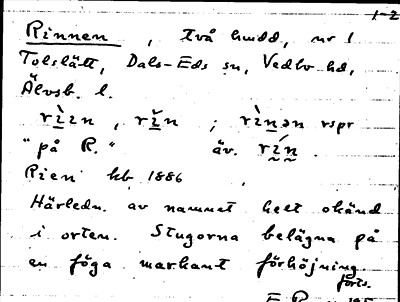 1-2
Rinnen , två hmdd, nr 1
Tolslätt, Dals-Eds sn, Vedbo hd,
Älvsb. l.
rı̀ın , rı̆n ; rı̀nən rspr
"på R." äv. rı́n .
Rien kb 1886
Härledn. av namnet helt okänd
i orten. Stugorna belägna på
en föga markant förhöjning.
forts.